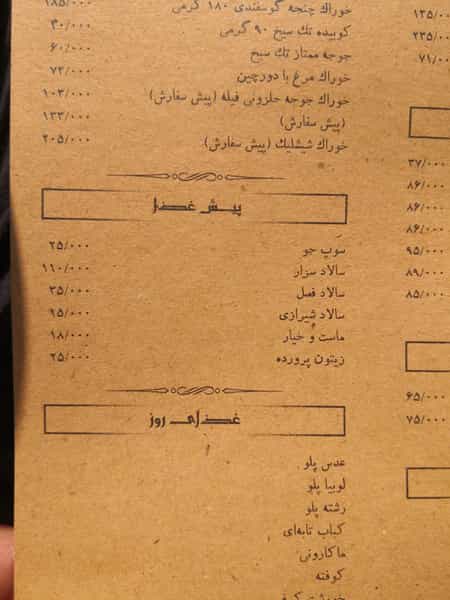 خوراک چنجه گوسفندی ۱۸۰ گرمی ۱۸۵/۰۰۰
کوبیده تک سیخ ۹۰ گرمی ۴۰/۰۰۰
جوجه ممتاز تک سیخ ۶۰/۰۰۰
خوراک مرغ با دورچین ۷۲/۰۰۰
خوراک جوجه حلزونی فیله (پیش سفارش) ۱۰۳/۰۰۰
(پیش سفارش) ۱۳۳/۰۰۰
خوراک شیشلیک (پیش سفارش) ۲۰۵/۰۰۰
پیش غذا
سوپ جو ۲۵/۰۰۰
سالاد سزار ۱۱۰/۰۰۰
سالاد فصل ۳۵/۰۰۰
سالاد شیرازی ۱۵/۰۰۰
ماست و خیار ۱۸/۰۰۰
زیتون پرورده ۲۵/۰۰۰
غذای روز
عدس پلو
لوبیا پلو
رشته پلو
کباب تابه‌ای
ماکارونی
کوفته
۱۳۵/۰۰
۲۳۵/۰۰
۷۱/۰۰
۳۷/۰۰۰
۸۶/۰۰۰
۸۶/۰۰۰
۸۶/۰۰۰
۹۵/۰۰۰
۸۹/۰۰۰
۸۵/۰۰۰
۶۵/۰۰۰
۷۵/۰۰۰